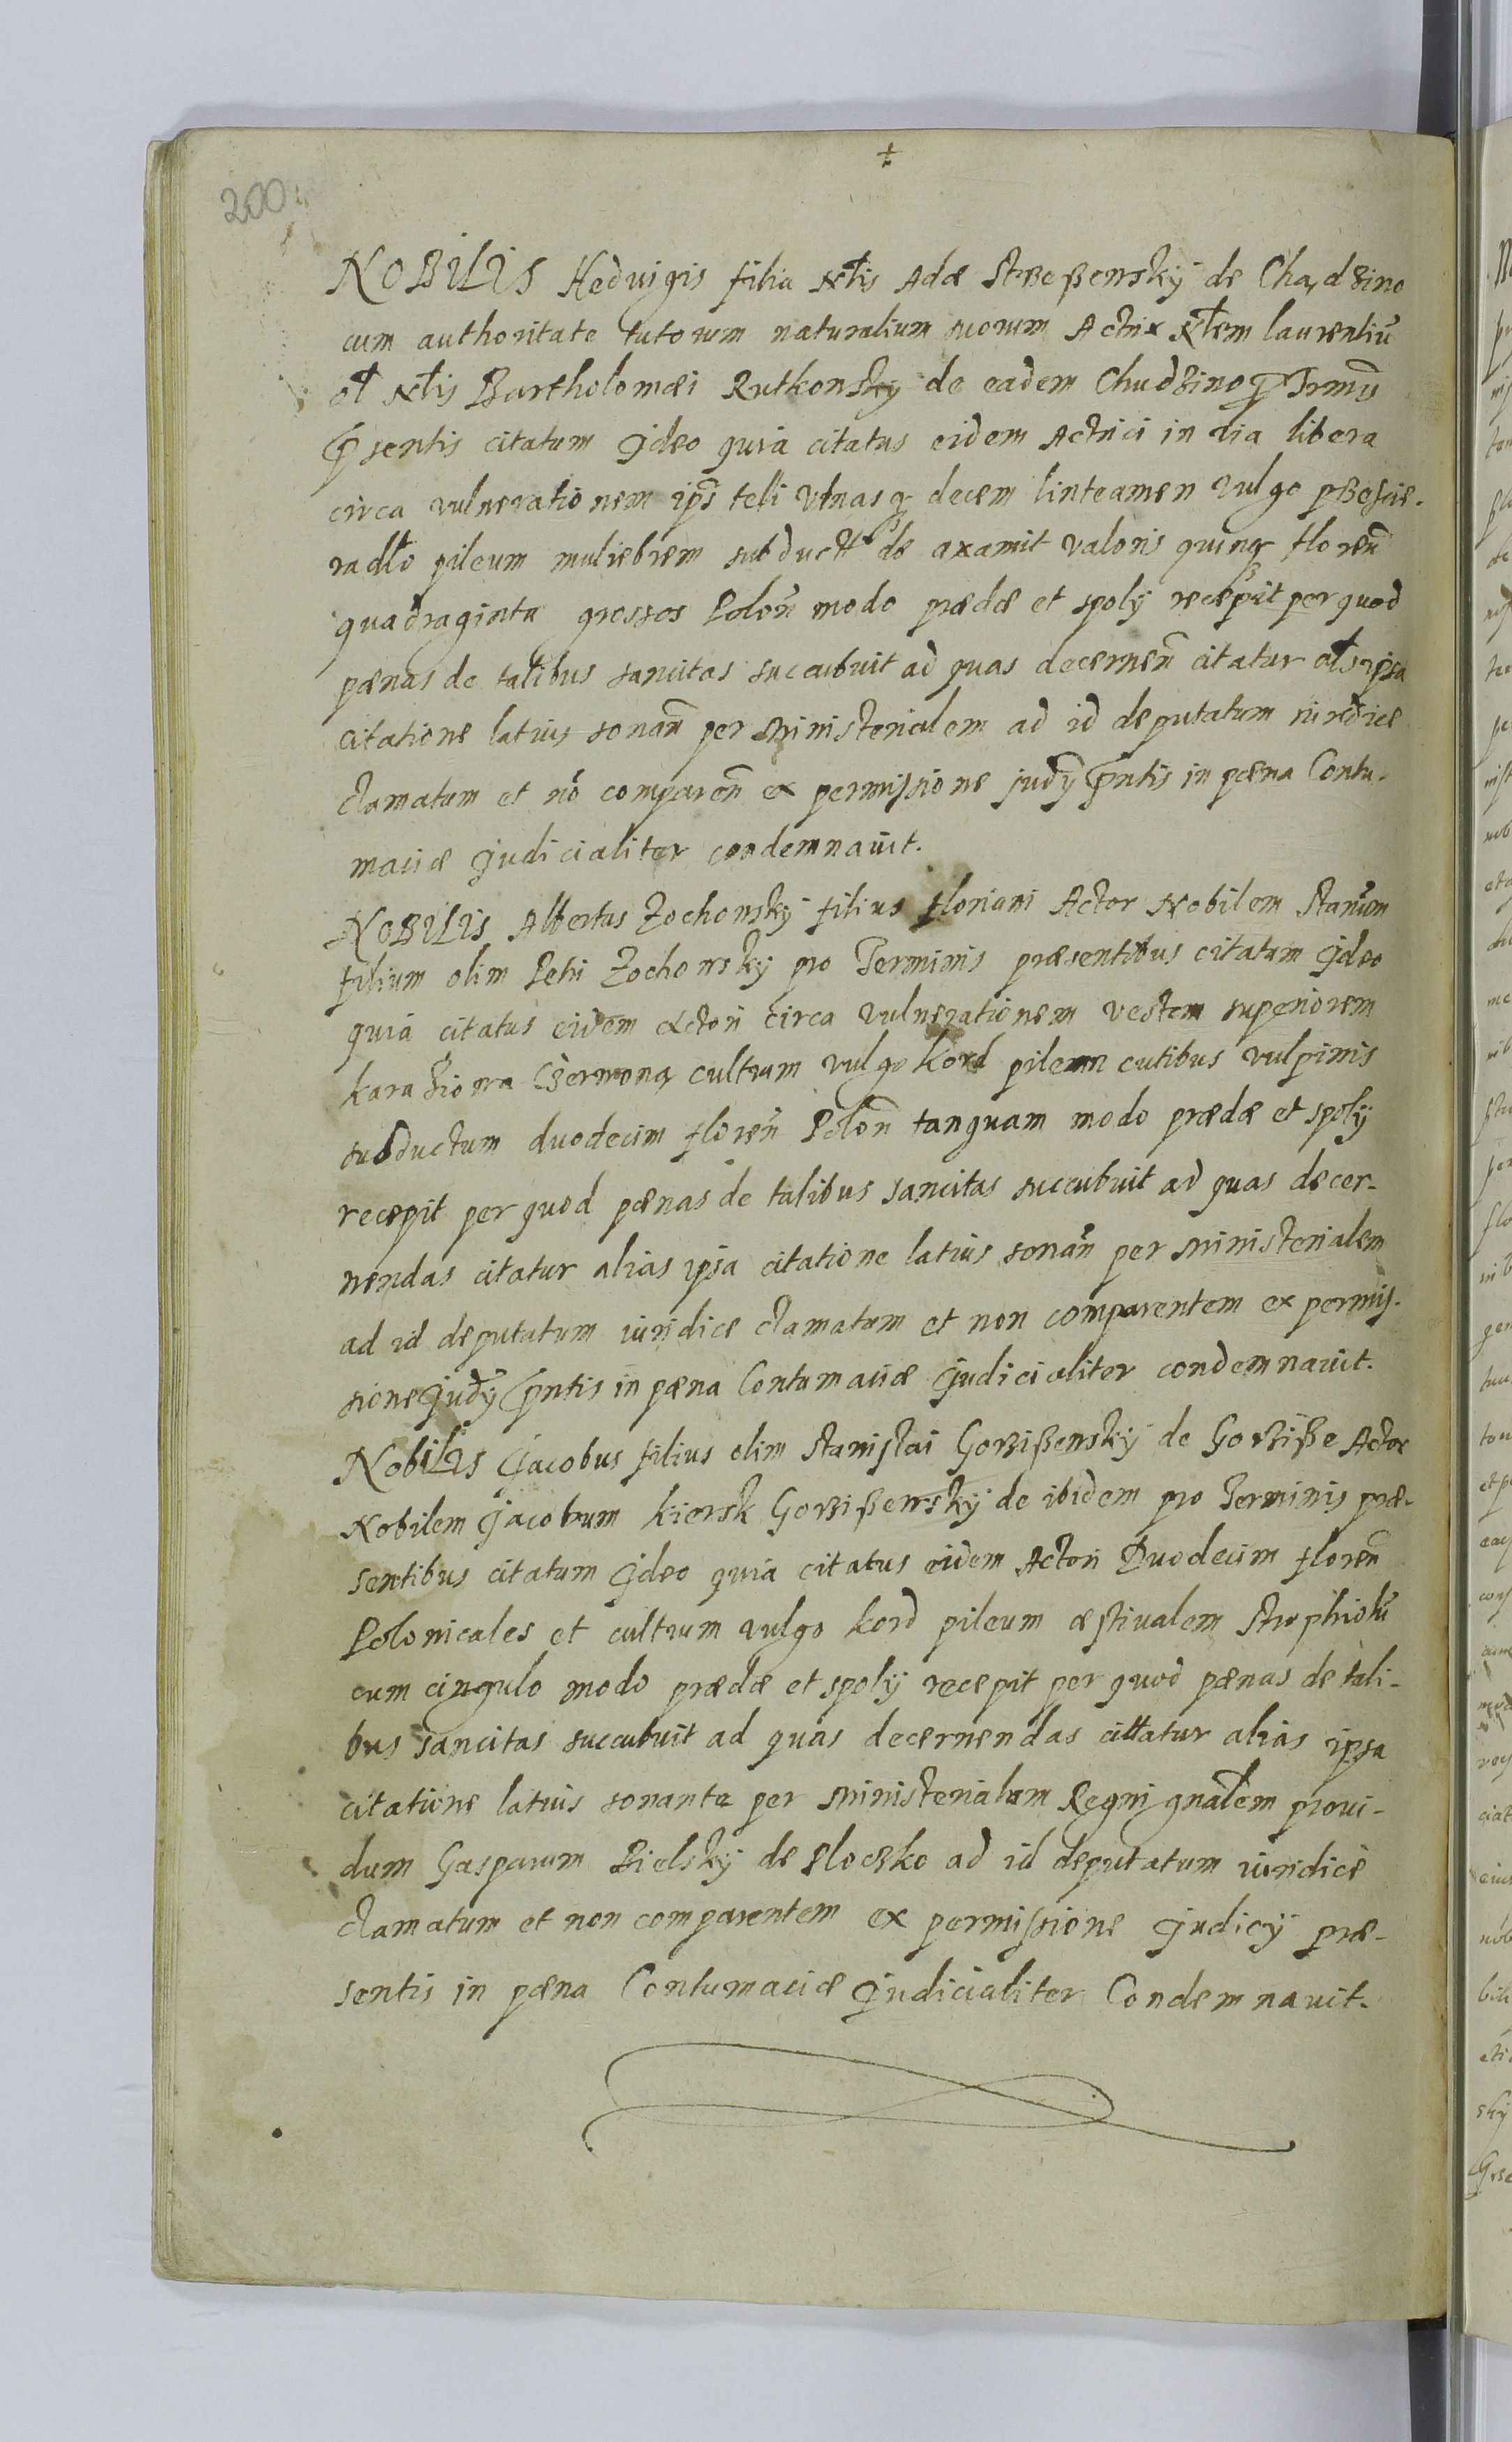 200
NOBILIS Hedvigis filia Nłis Adæ StrzeßeWsky de Chądzino
cum authoritate tutorum naturalium suorum Actrix Nłem laurentiũ
oł Nłis Bartholomæi RutkoWsky de eadem Chudzino p Trmis
psentis citatum Ideo quia citatus eidem Actrici in via libera
circa vulnerationem ips teli Vlnasq decem linteamen vulgo przescie-
radło pileum muliebrem subductt de axamit valoris quinq floreñ
quadraginta grossos Poloñ modo prædæ et spolij recepit per quod
pænas de talibus sancitas succubuit ad quas decerneñ citatur als ipsa
citatione latius sonañ per Ministerialem ad id deputatum iuridice
clamatum et nõ compareñ ex permissione judÿ pntis in pæna Contu-
maciæ Judicialiter condemnauit.
NOBILIS Albertus ZochoWsky filius floriani Actor Nobilem Stanũm
filium olim Petri ZochoWsky pro Terminis præsentibus citatum Ideo
quia citatus eidem Actori circa vulnerationem vestem superiorem
karazioWa CzerWoną cultrum vulgo Kord pileum cutibus vulpinis
subductum duodecim floreñ Poloñ tanquam modo prædæ et spolij
recepit per quod pænas de talibus sancitas succubuit ad quas decer-
nendas citatur alias ipsa citatione latius sonañ per Ministerialem
ad id deputatum iuridice clamatum et non comparentem ex permis-
sione Judÿ pntis in pæna Contumaciæ Judicialiter condemnauit.
Nobilis Jacobus filius olim Stanislai GorzißeWsky de Gorziße Actor
Nobilem Jacobum Kiersk GorzißeWsky de ibidem pro Terminis præ-
sentibus citatum Ideo quia citatus eidem Actori Duodecim floreñ
Polonicales et cultrum vulgo kord pileum æstiualem Strophiolũ
cum cingulo modo prædæ et spolij recepit per quod pænas de tali-
bus sancitas succubuit ad quas decernendas citatur alias ipsa
citatione latius sonante per Ministerialem Regni gnałem proui-
dum Gasparum Bielsky de Ploczko ad id deputatum iuridicè
clamatum et non comparentem ex permissione Judicij præ-
sentis in pæna Contumaciæ Judicialiter Condemnauit.